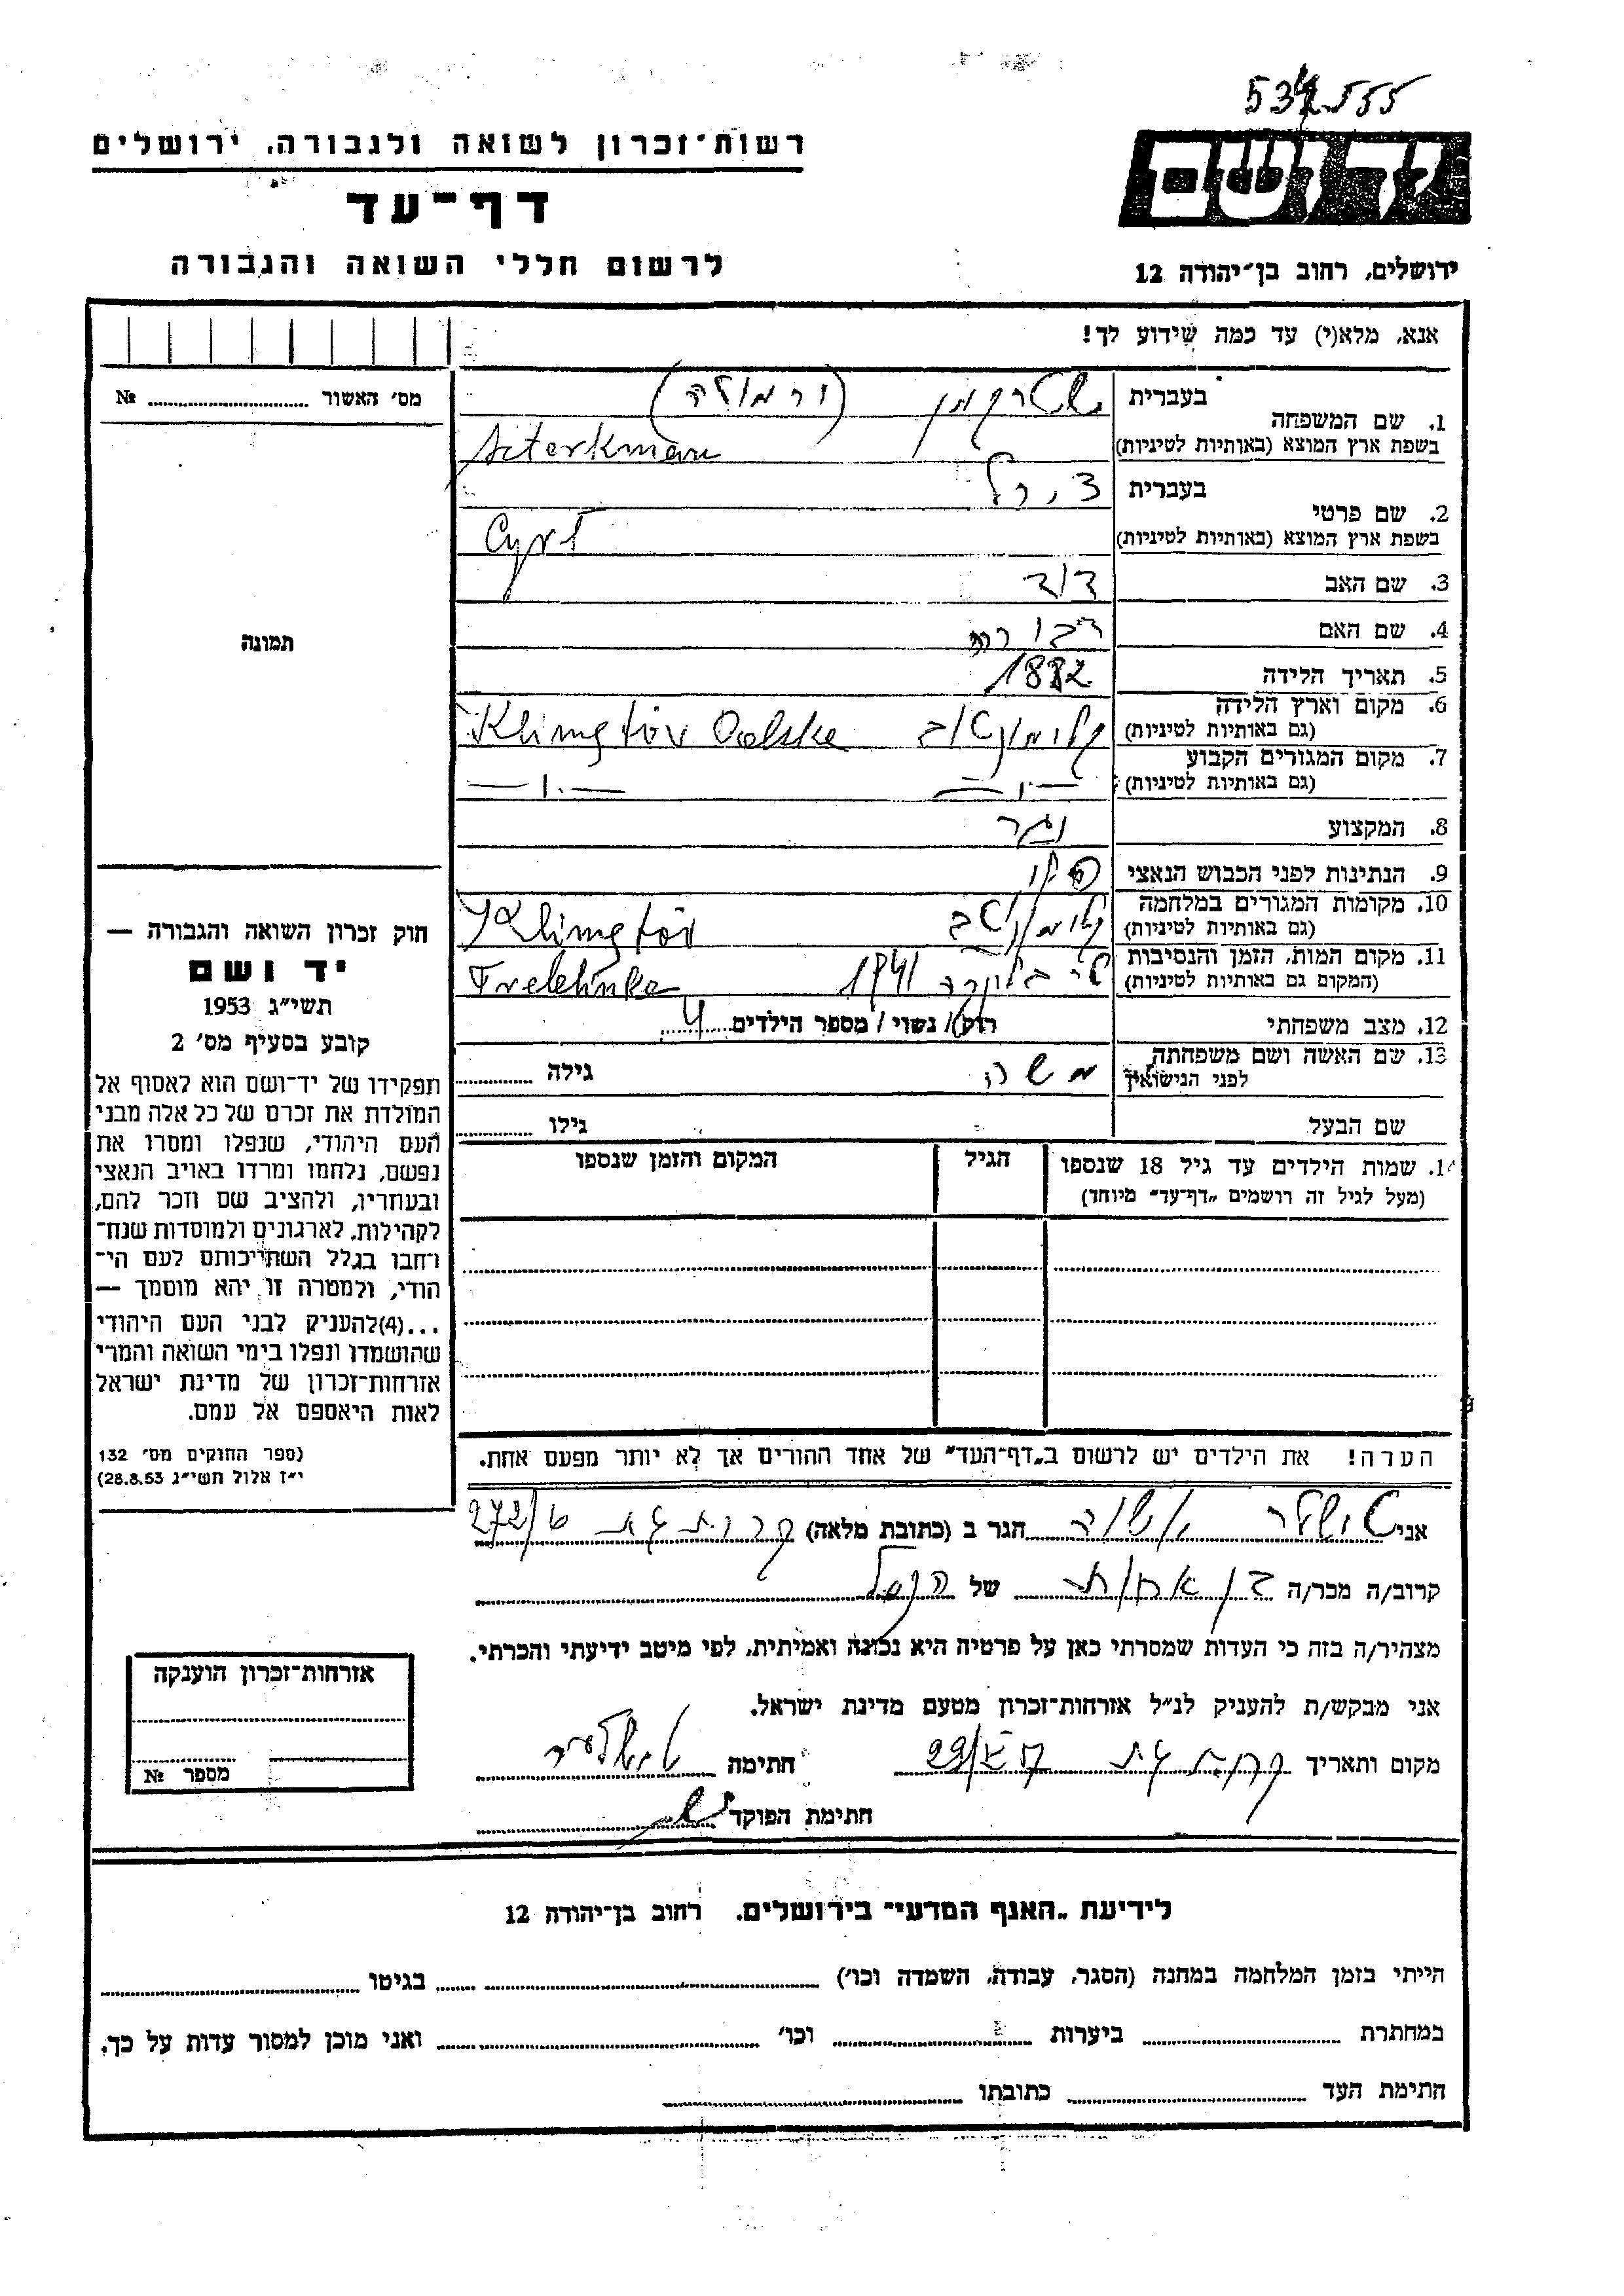 רשות־זכרון לשואה ולגבורה, ירושלים
דף־עד
לרשום חללי השואה והגבורה
יד ושם
ירושלים, רחוב בן־יהודה 12
אנא, מלא(י) עד כמה שידוע לך!
מס׳ האשור № 
תמונה
1. שם המשפחה
בעברית
בשפת ארץ המוצא (באותיות לטיניות) Szterkman
2. שם פרטי
בעברית צירל
בשפת ארץ המוצא (באותיות לטיניות) Cyrl
3. שם האב דוד
4. שם האם דבורה
5. תאריך הלידה
6. מקום וארץ הלידה
(גם באותיות לטיניות) Klimgtów
7. מקום המגורים הקבוע
(גם באותיות לטיניות)
8. המקצוע נגר
9. הנתינות לפני הכבוש הנאצי
10. מקומות המגורים במלחמה
(גם באותיות לטיניות) Klimgtów
11. מקום המות, הזמן והנסיבות
(המקום גם באותיות לטיניות) 1941
12. מצב משפחתי רווק/ נשוי/ מספר הילדים 4
13. שם האשה ושם משפחתה
לפני הנישואין משה גילה
שם הבעל גילו
14. שמות הילדים עד גיל 18 שנספו
(מעל לגיל זה רושמים „דף־עד״ מיוחד)
הגיל
המקום והזמן שנספו
הערה! את הילדים יש לרשום ב„דף־העד״ של אחד ההורים אך לא יותר מפעם אחת.
חוק זכרון השואה והגבורה —
יד ושם
תשי״ג 1953
קובע בסעיף מס׳ 2
תפקידו של יד־ושם הוא לאסוף אל
המולדת את זכרם של כל אלה מבני
העם היהודי, שנפלו ומסרו את
נפשם, נלחמו ומרדו באויב הנאצי
ובעוזריו, ולהציב שם וזכר להם,
לקהילות, לארגונים ולמוסדות שנח־
רבו בגלל השתייכותם לעם הי־
הודי, ולמטרה זו יהא מוסמך —
...(4) להעניק לבני העם היהודי
שהושמדו ונפלו בימי השואה והמרי
אזרחות־זכרון של מדינת ישראל
לאות היאספם אל עמם.
(ספר החוקים מס׳ 132
י״ז אלול תשי״ג 28.8.53)
אני הגר ב (כתובת מלאה) קרית גת 272/
קרוב/ה מכר/ה בן אחות של הנ״ל
מצהיר/ה בזה כי העדות שמסרתי כאן על פרטיה היא נכונה ואמיתית, לפי מיטב ידיעתי והכרתי.
אני מבקש/ת להעניק לנ״ל אזרחות־זכרון מטעם מדינת ישראל.
מקום ותאריך קרית גת חתימה
חתימת הפוקד
אזרחות־זכרון הוענקה
מספר №
לידיעת „האגף המדעי״ בירושלים, רחוב בן־יהודה 12
הייתי בזמן המלחמה במחנה (הסגר, עבודה, השמדה וכו׳) בגיטו
במחתרת ביערות וכו׳ ואני מוכן למסור עדות על כך.
חתימת העד כתובתו